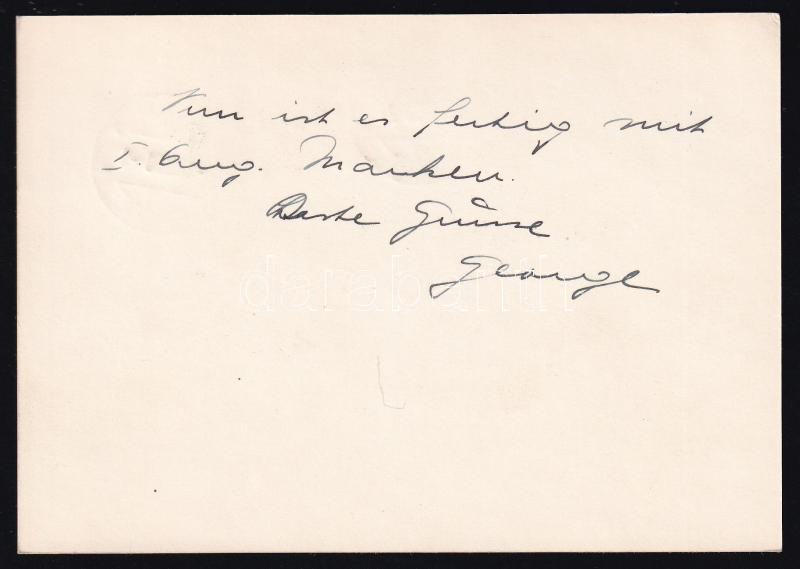 Nun ist es fertig mit
I. Aug. Marken.
Beste Grüsse
George
darabanth